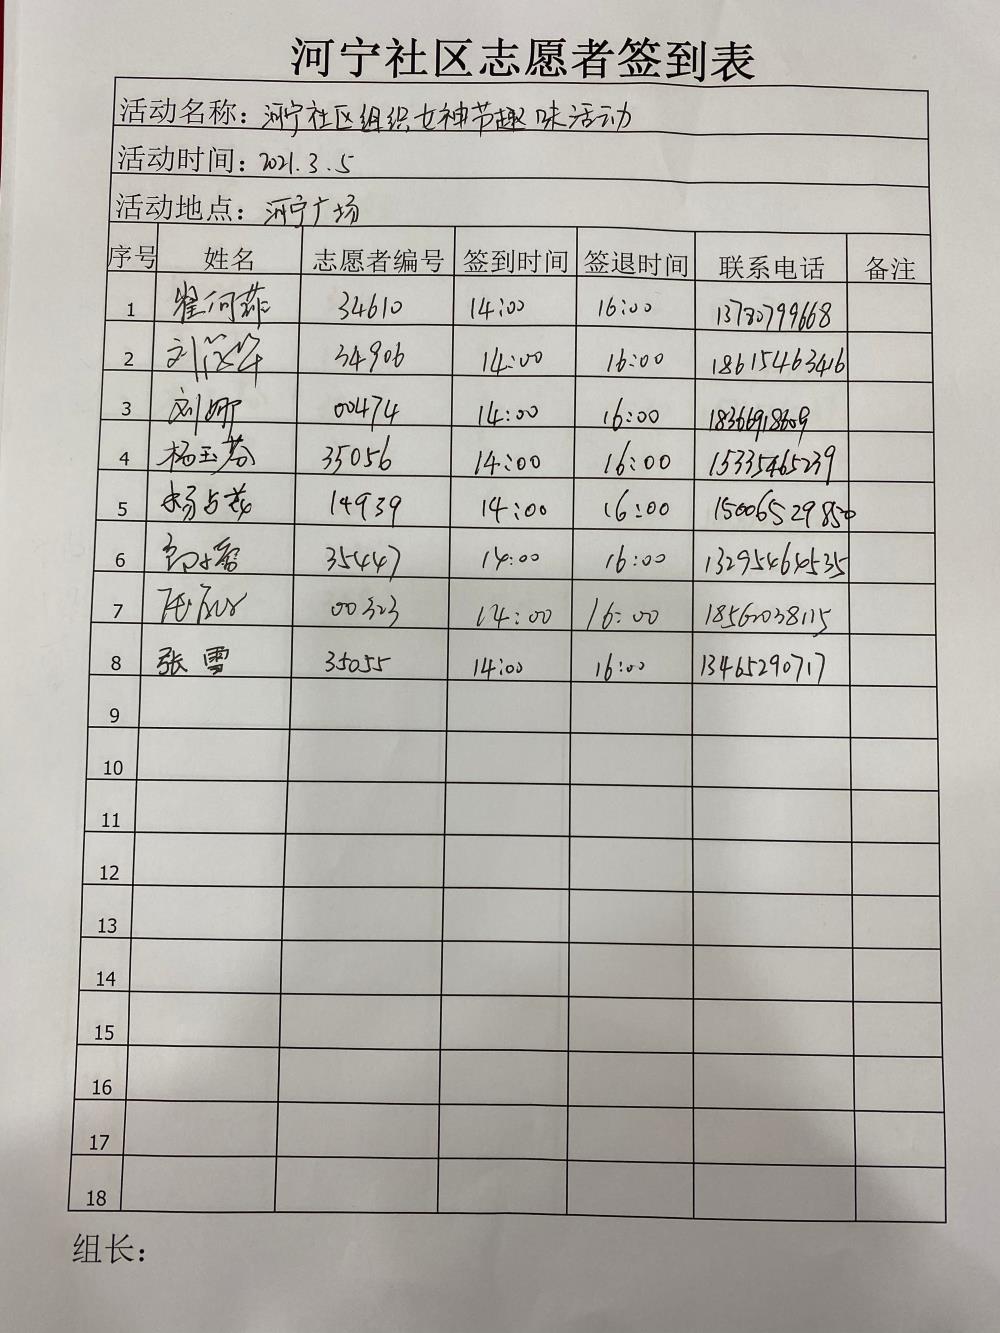 河宁社区志愿者签到表
活动名称：河宁社区组织女神节趣味活动
活动时间：2021.3.5
活动地点：河宁广场
序号 姓名 志愿者编号 签到时间 签退时间 联系电话 备注
1 翟何菲 34610 14:00 16:00 13780799668
2 刘 34906 14:00 16:00 18615463416
3 刘娜 00474 14:00 16:00 18366918609
4 杨玉芬 35056 14:00 16:00 15335465239
5 14939 14:00 16:00 15006529850
6 35447 14:00 16:00 13295464535
7 00323 14:00 16:00 18562038115
8 张雪 35055 14:00 16:00 13465290717
9
10
11
12
13
14
15
16
17
18
组长：